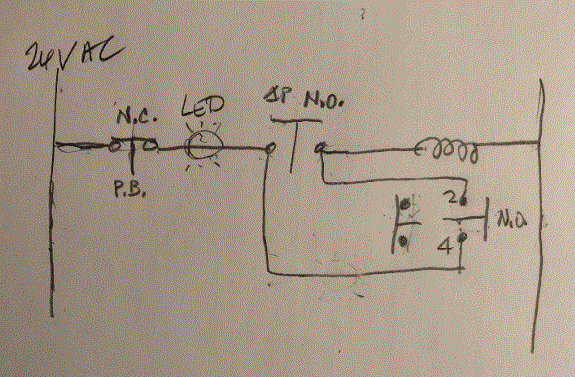 24VAC
N.C.
LED
ΔP N.O.
P.B.
2
N.O.
4